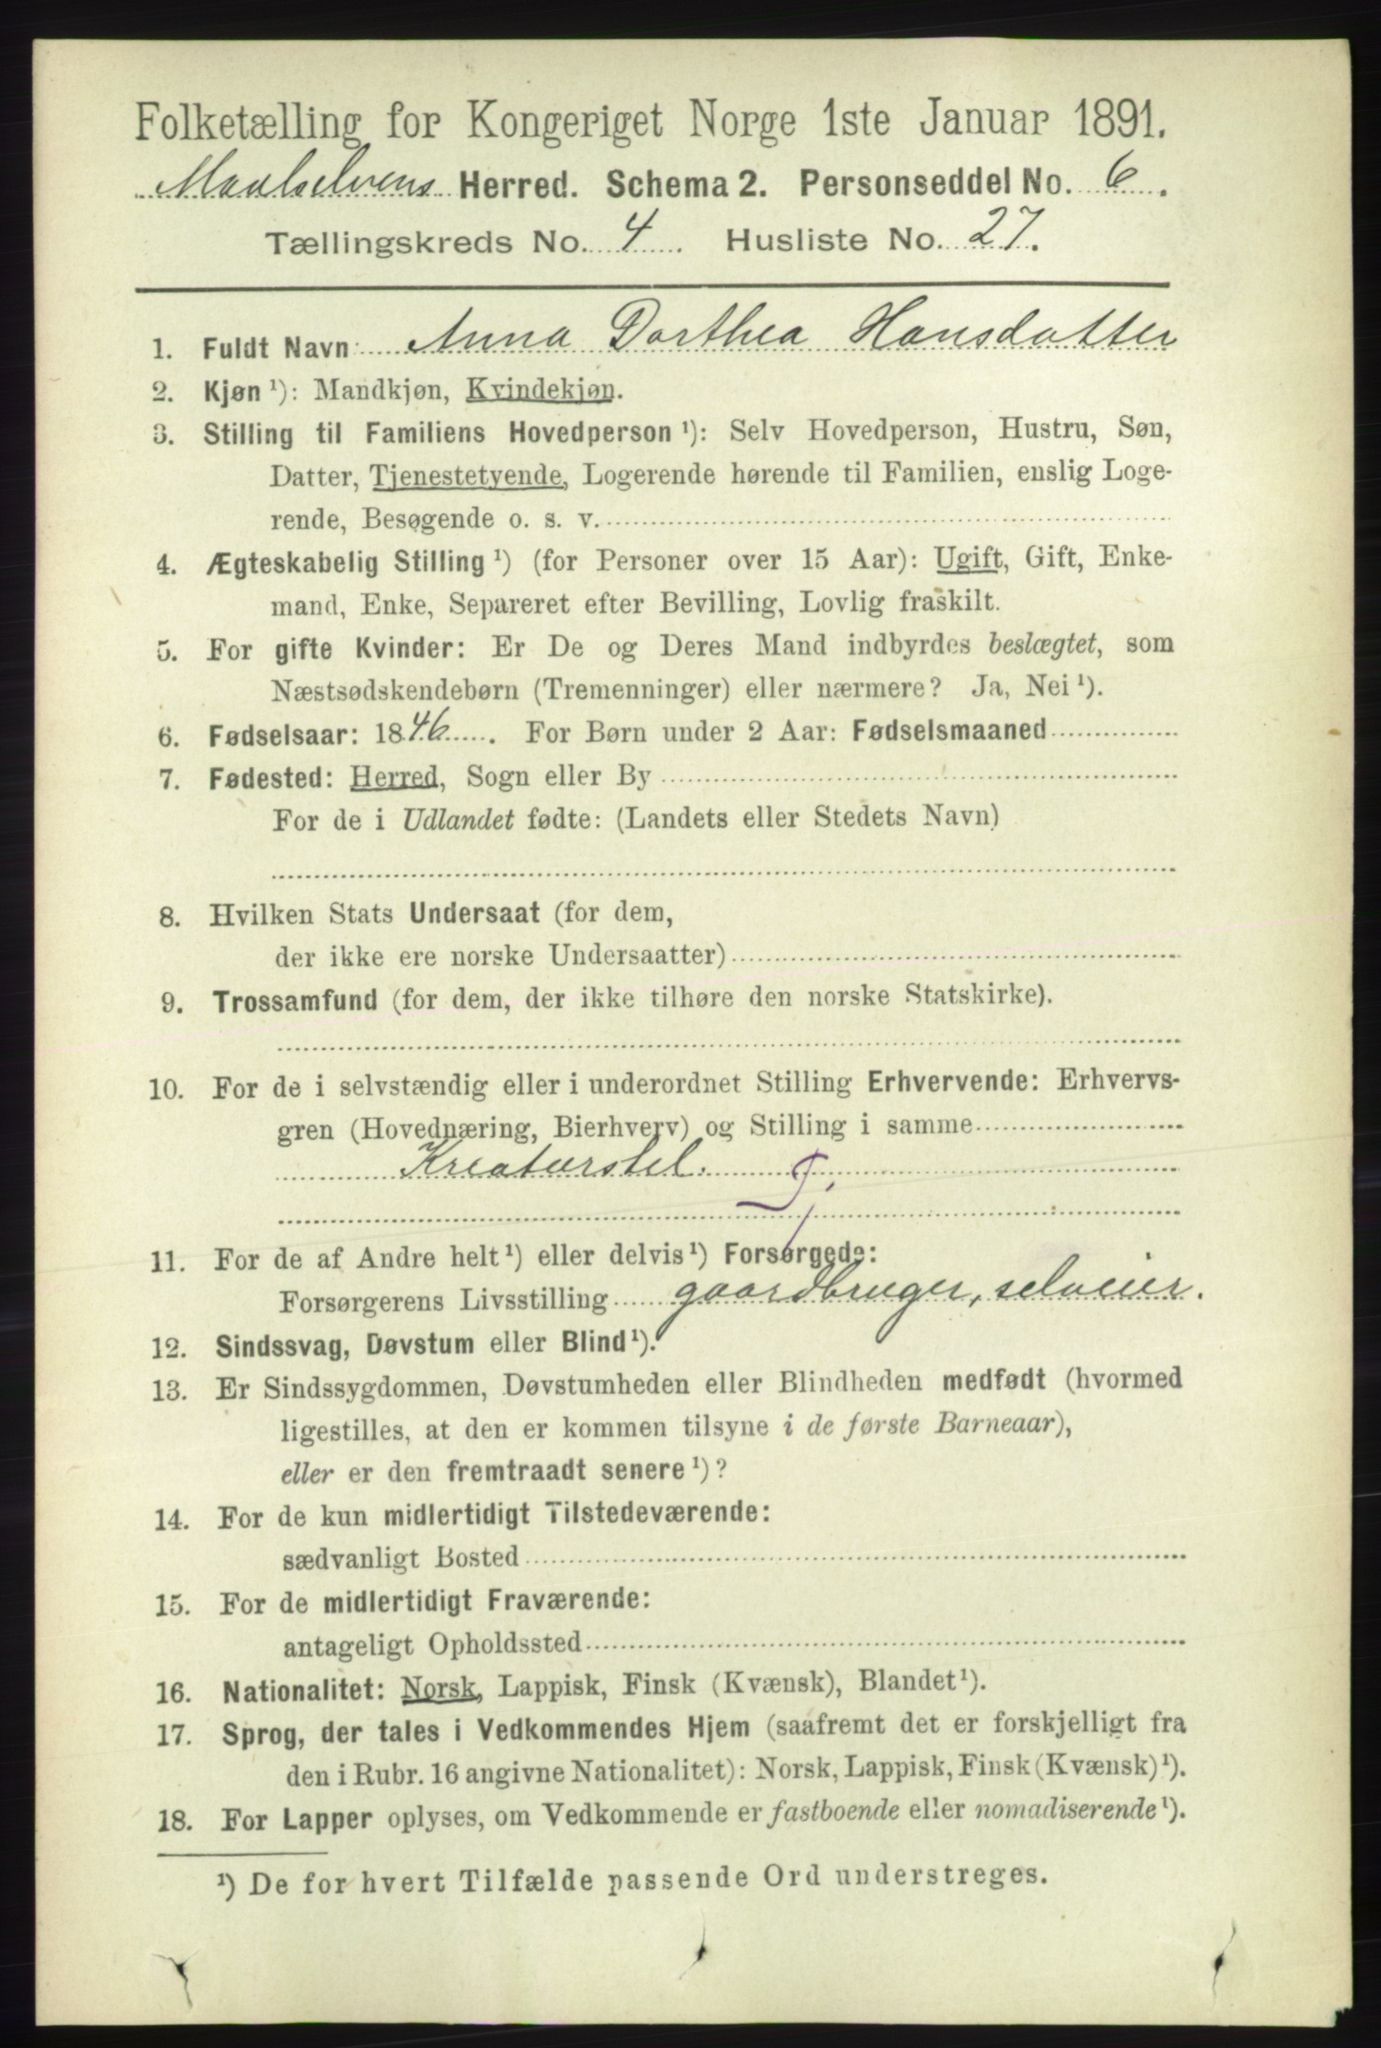 Folketælling for Kongeriget Norge 1ste Januar 1891.
Maalselvens Herred. Schema 2. Personseddel No. 6.
Tællingskreds No. 4. Husliste No. 27.
1. Fuldt Navn Anna Dorthea Hansdatter
2. Kjøn ¹): Mandkjøn, Kvindekjøn.
3. Stilling til Familiens Hovedperson ¹): Selv Hovedperson, Hustru, Søn,
Datter, Tjenestetyende, Logerende hørende til Familien, enslig Loge-
rende, Besøgende o. s. v.
4. Ægteskabelig Stilling ¹) (for Personer over 15 Aar): Ugift, Gift, Enke-
mand, Enke, Separeret efter Bevilling, Lovlig fraskilt.
5. For gifte Kvinder: Er De og Deres Mand indbyrdes beslægtet, som
Næstsødskendebørn (Tremenninger) eller nærmere? Ja, Nei ¹).
6. Fødselsaar: 1846. For Børn under 2 Aar: Fødselsmaaned
7. Fødested: Herred, Sogn eller By
For de i Udlandet fødte: (Landets eller Stedets Navn)
8. Hvilken Stats Undersaat (for dem,
der ikke ere norske Undersaatter)
9. Trossamfund (for dem, der ikke tilhøre den norske Statskirke).
10. For de i selvstændig eller i underordnet Stilling Erhvervende: Erhvervs-
gren (Hovednæring, Bierhverv) og Stilling i samme
Kreaturstel. Tj
11. For de af Andre helt ¹) eller delvis ¹) Forsørgede:
Forsørgerens Livsstilling gaardbruger, selveier.
12. Sindssvag, Døvstum eller Blind ¹).
13. Er Sindssygdommen, Døvstumheden eller Blindheden medfødt (hvormed
ligestilles, at den er kommen tilsyne i de første Barneaar),
eller er den fremtraadt senere ¹)?
14. For de kun midlertidigt Tilstedeværende:
sædvanligt Bosted
15. For de midlertidigt Fraværende:
antageligt Opholdssted
16. Nationalitet: Norsk, Lappisk, Finsk (Kvænsk), Blandet ¹).
17. Sprog, der tales i Vedkommendes Hjem (saafremt det er forskjelligt fra
den i Rubr. 16 angivne Nationalitet): Norsk, Lappisk, Finsk (Kvænsk) ¹).
18. For Lapper oplyses, om Vedkommende er fastboende eller nomadiserende ¹).
¹) De for hvert Tilfælde passende Ord understreges.